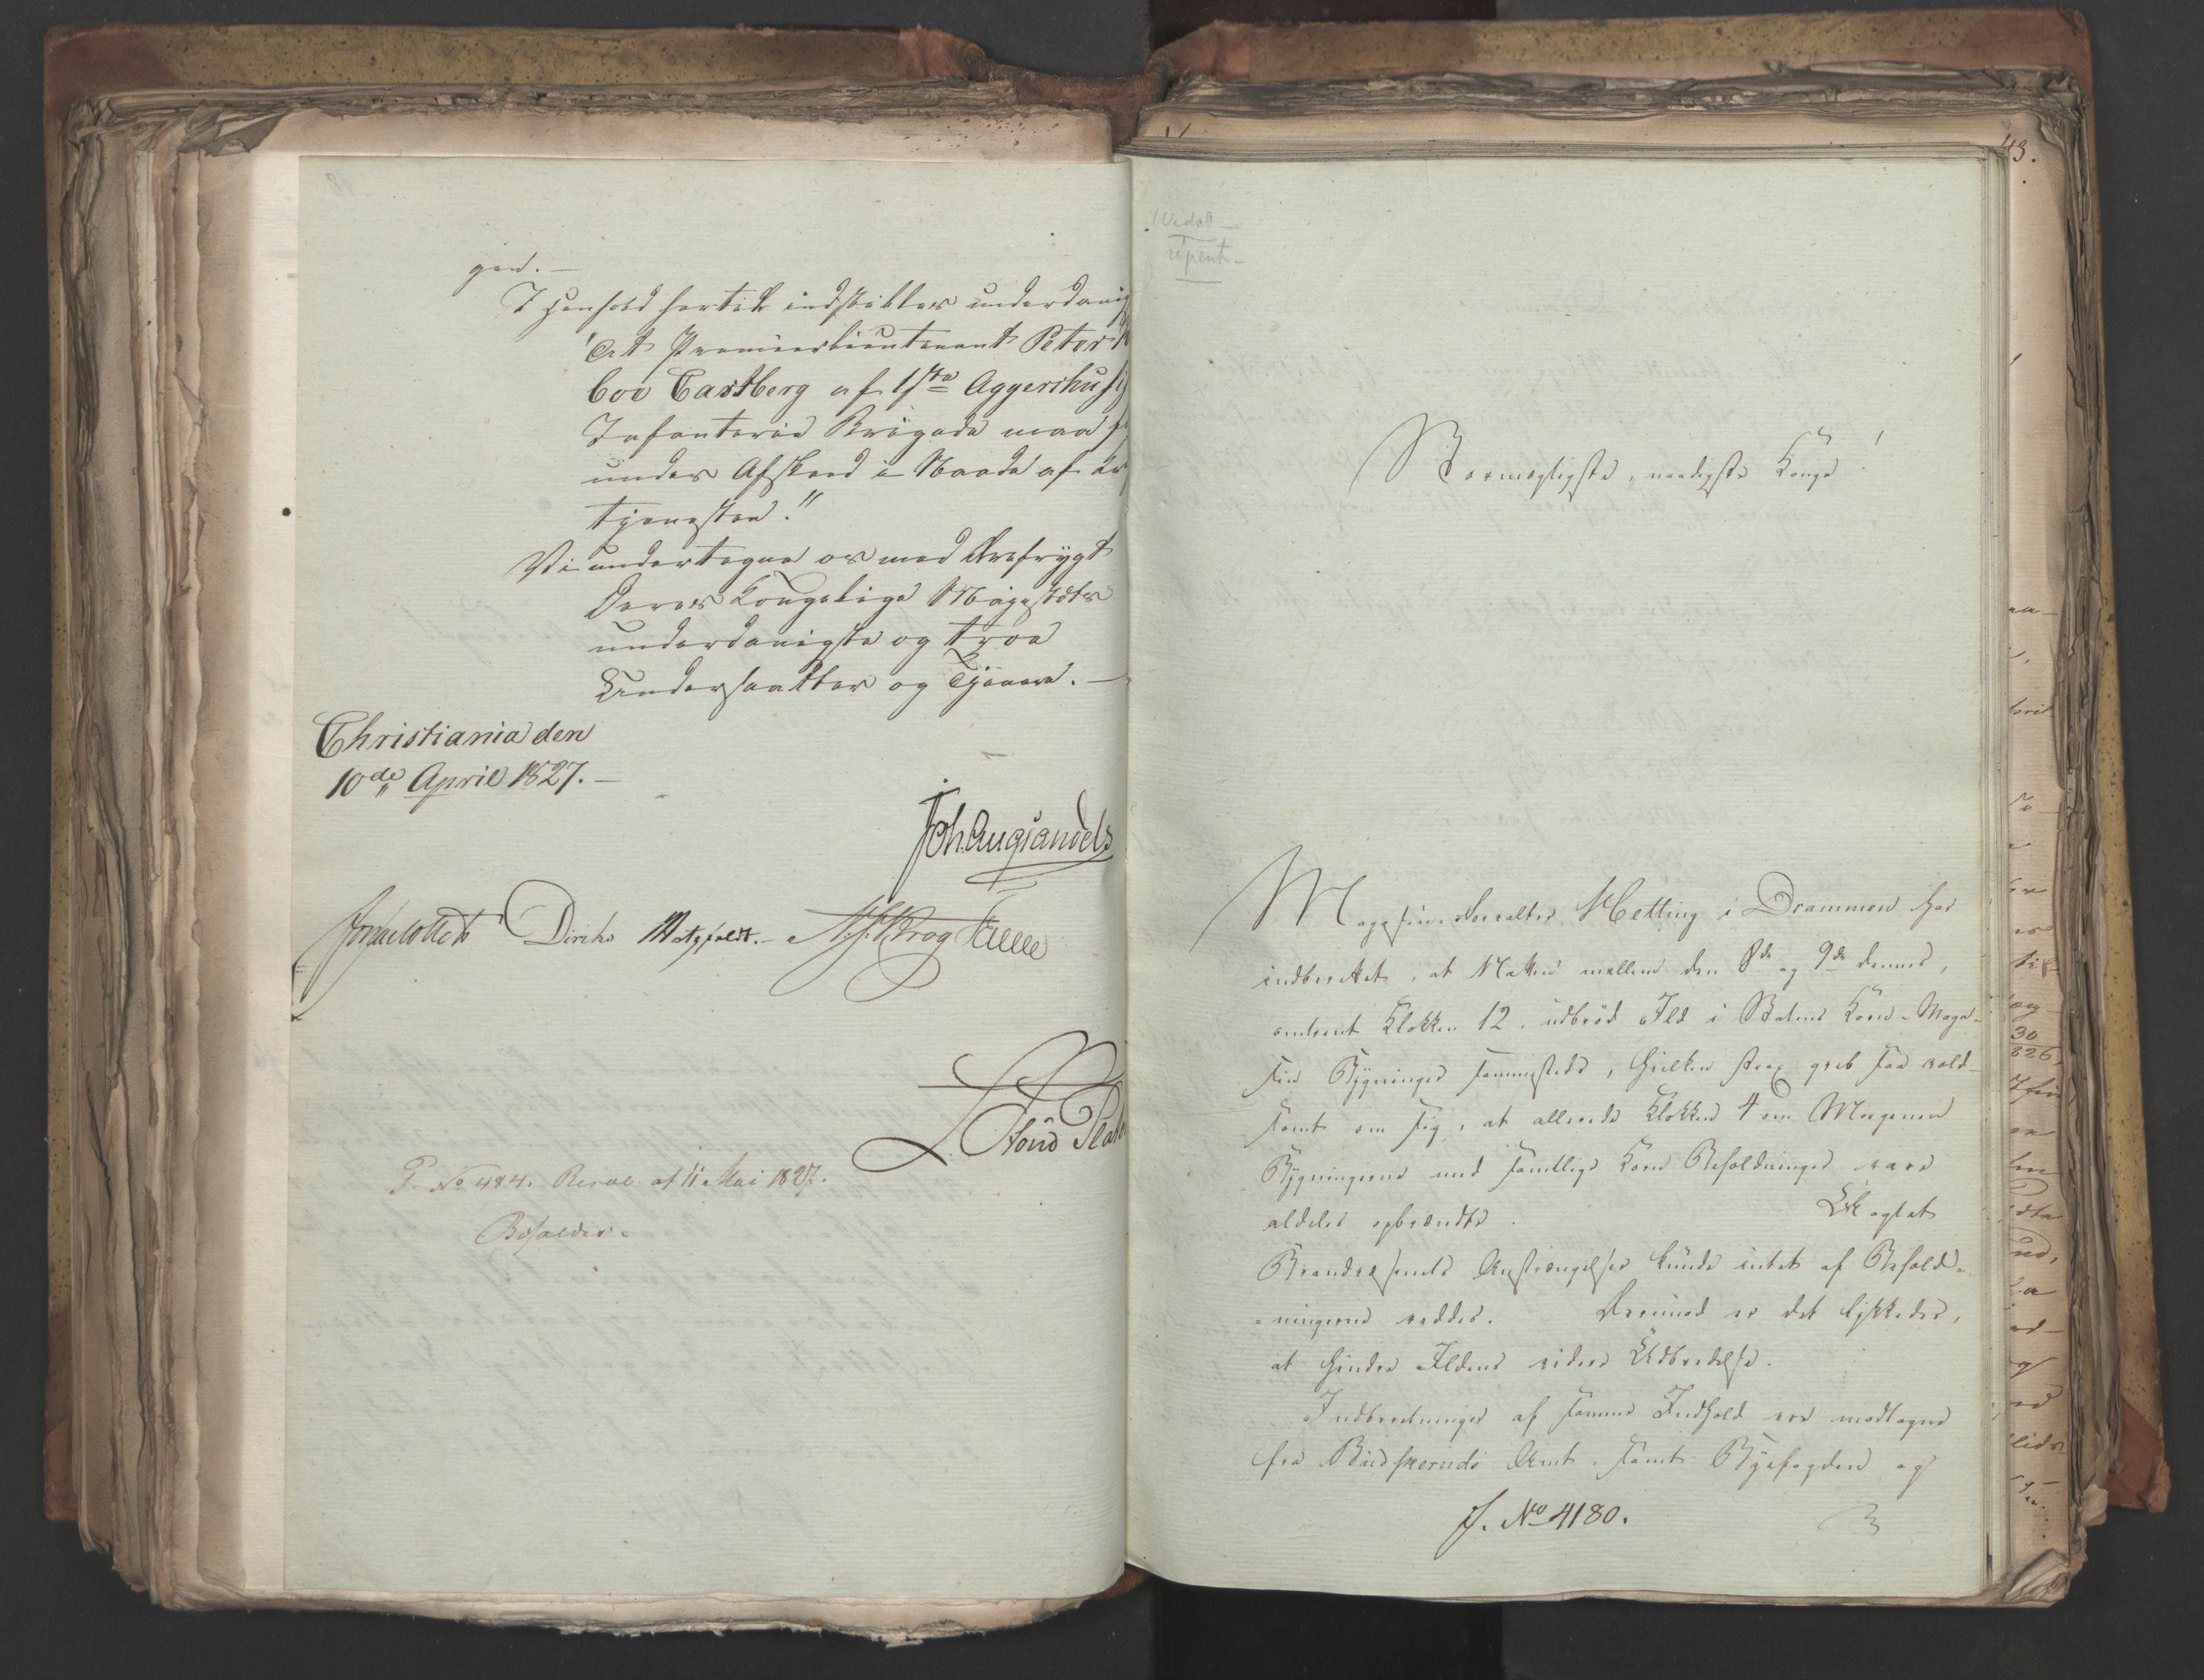 gen. —
I Henhold hertil indstilles underdanig
"At Premierlieutenant Peter
boe Castberg af 1ste Aggershusi
Infanterie Brigade maa
under Afskeed i Naade af
tjenesten."
Vi undertegne os med Ærefrygt
Deres Kongelige Majestæts
underdanigste og troe
Undersaatter og Tjenere. —
Christiania den
10de April 1827. —
Joh. Aug. Sandels
Jonas Collett Diriks Motzfeldt. N. J. Krog Falsen
P. No 484. Resol. af 11 Mai 1827.
Bifaldes.
repent. —
Stormægtigste, naadigste Konge!
Magasin-Forvalter Metting i Drammen har
indberettet, at Natten mellem den 8de og 9de dennes,
omtrent Klokken 12, udbrød Ild i Statens Korn-Maga-
sin Bygninger sammesteds, hvilken strax greb saa vold-
somt om sig, at allerede Klokken 4 om Morgenen
Bygningerne med samtlige Korn Beholdninger vare
aldeles opbrændte. Uagtet
Brandvæsenets Anstrængelser kunde intet af Behold-
-ningerne reddes. Derimod er det lykkedes,
at hindre Ildens videre Udbredelse.
Indberetninger af samme Indhold ere modtagne
fra Buskeruds Amt, samt Byefogden og
J. No 4180.